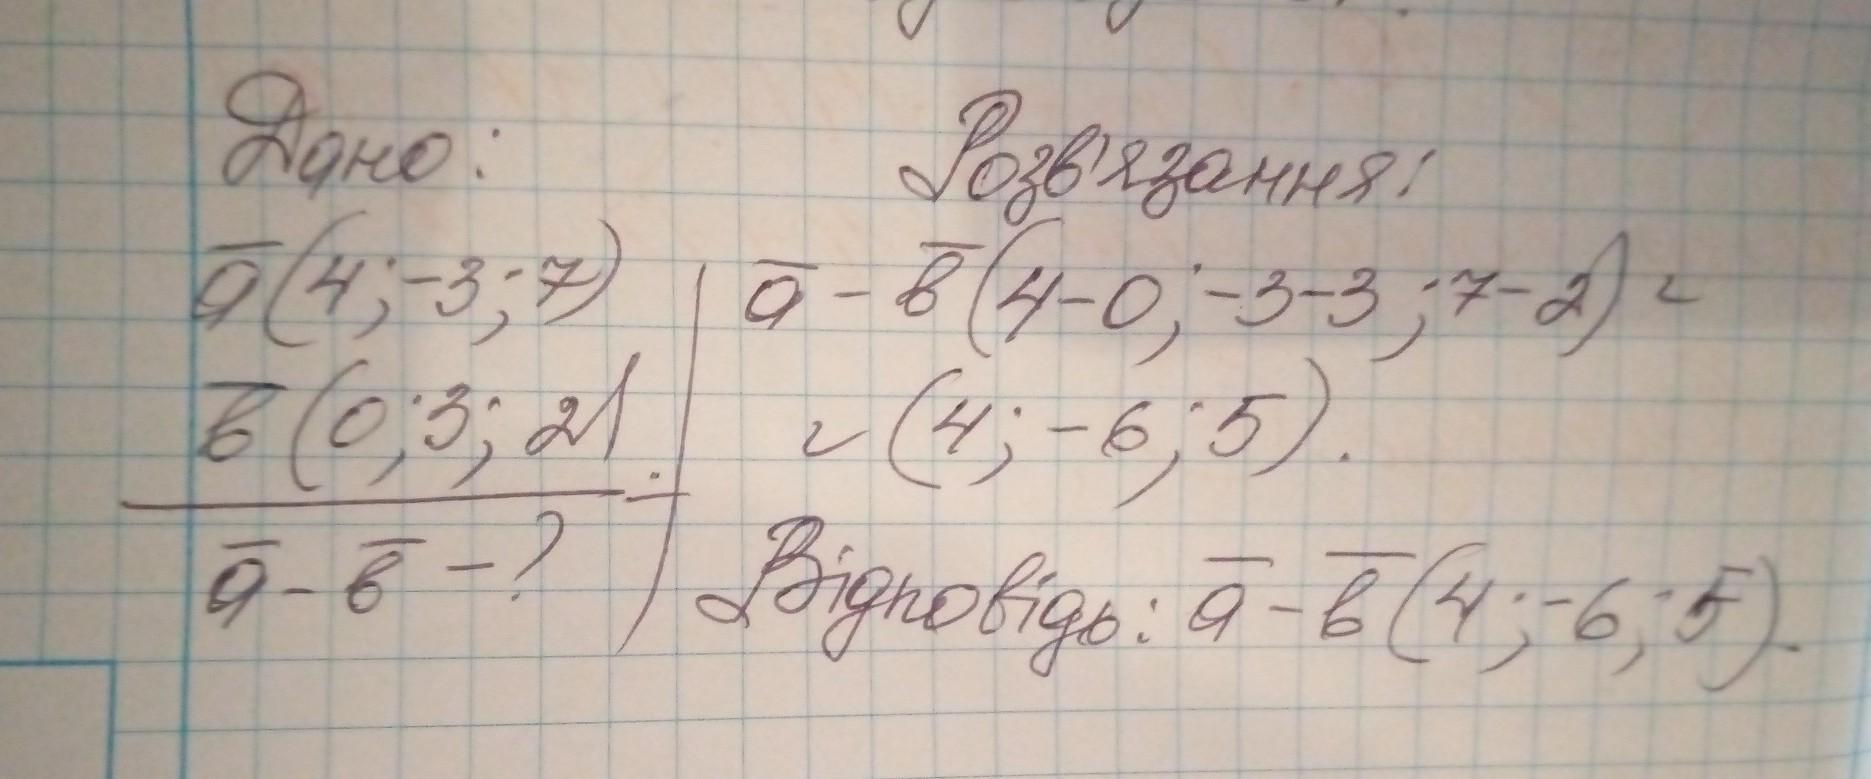 Дано:
a̅(4;-3;7)
b̅(0;3;2).
a̅-b̅-?
Розв'язання:
a̅-b̅(4-0;-3-3;7-2)=
=(4;-6;5).
Відповідь: a̅-b̅(4;-6;5).